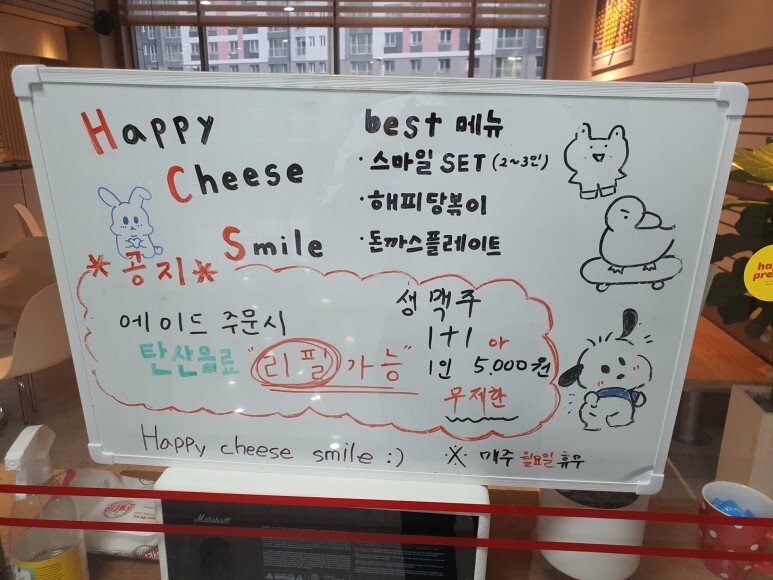 Happy
Cheese
Smile
best 메뉴
· 스마일 SET (2~3인)
· 해피당볶이
· 돈까스플레이트
*공지*
에이드 주문시
탄산음료 "리필 가능"
생맥주
1+1 or
1인 5,000원
무제한
Happy cheese smile :)
※ 매주 월요일 휴무
Marshall